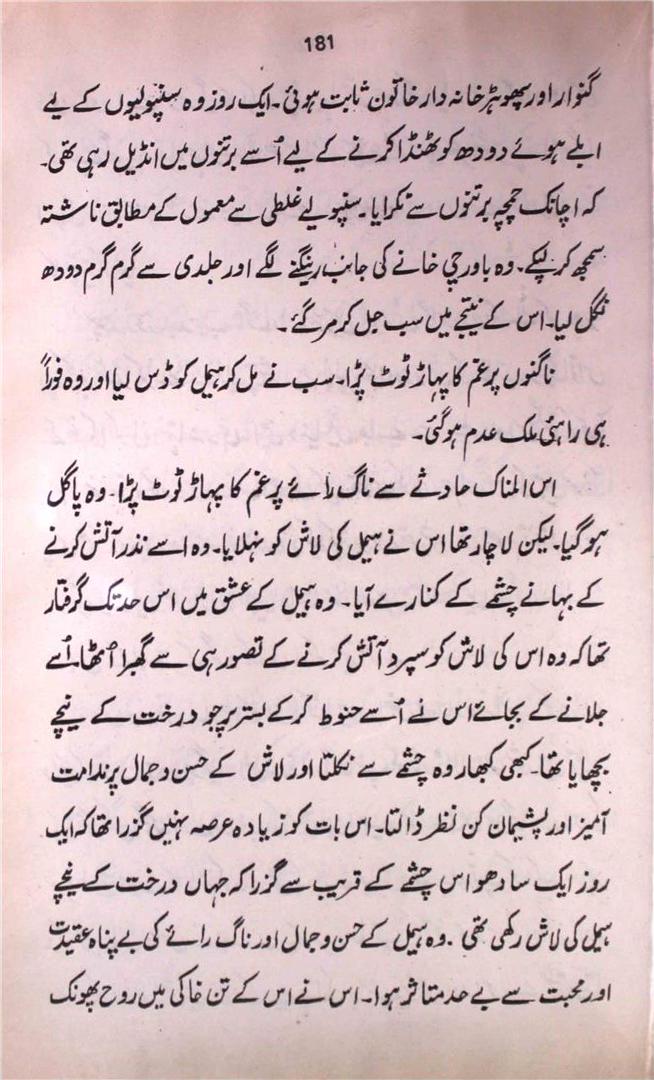 181
گنوار اور پھوہڑ خانہ دار خاتون ثابت ہوئی۔ ایک روز وہ سنپولیوں کے لیے
ابلے ہوئے دودھ کو ٹھنڈا کرنے کے لیے اُسے برتنوں میں انڈیل رہی تھی۔
کہ اچانک چمچہ برتنوں سے ٹکرایا۔ سنپولیے غلطی سے معمول کے مطابق ناشتہ
سمجھ کر لپکے۔ وہ باورچی خانے کی جانب رینگنے لگے اور جلدی سے گرم گرم دودھ
نگل لیا۔ اس کے نتیجے میں سب جل کر مر گئے۔
ناگنوں پر غم کا پہاڑ ٹوٹ پڑا۔ سب نے مل کر ہیمل کو ڈس لیا اور وہ فوراً
ہی راہئی ملک عدم ہو گئی۔
اس المناک حادثے سے ناگ رائے پر غم کا پہاڑ ٹوٹ پڑا۔ وہ پاگل
ہو گیا۔ لیکن لاچار تھا اس نے ہیمل کی لاش کو نہلایا۔ وہ اسے نذر آتش کرنے
کے بہانے چشمے کے کنارے آیا۔ وہ ہیمل کے عشق میں اس حد تک گرفتار
تھا کہ وہ اس کی لاش کو سپرد آتش کرنے کے تصور ہی سے گھبرا اُٹھا۔ اُسے
جلانے کے بجائے اس نے اُسے حنوط کر کے بستر پر جو درخت کے نیچے
بچھایا تھا۔ کبھی کبھار وہ چشمے سے نکلتا اور لاش کے حسن و جمال پر ندامت
آمیز اور پشیمان کن نظر ڈالتا۔ اس بات کو زیادہ عرصہ نہیں گزرا تھا کہ ایک
روز ایک سادھو اس چشمے کے قریب سے گزرا کہ جہاں درخت کے نیچے
ہیمل کی لاش رکھی تھی۔ وہ ہیمل کے حسن و جمال اور ناگ رائے کی بے پناہ عقیدت
اور محبت سے بے حد متاثر ہوا۔ اس نے اس کے تن خاکی میں روح پھونک